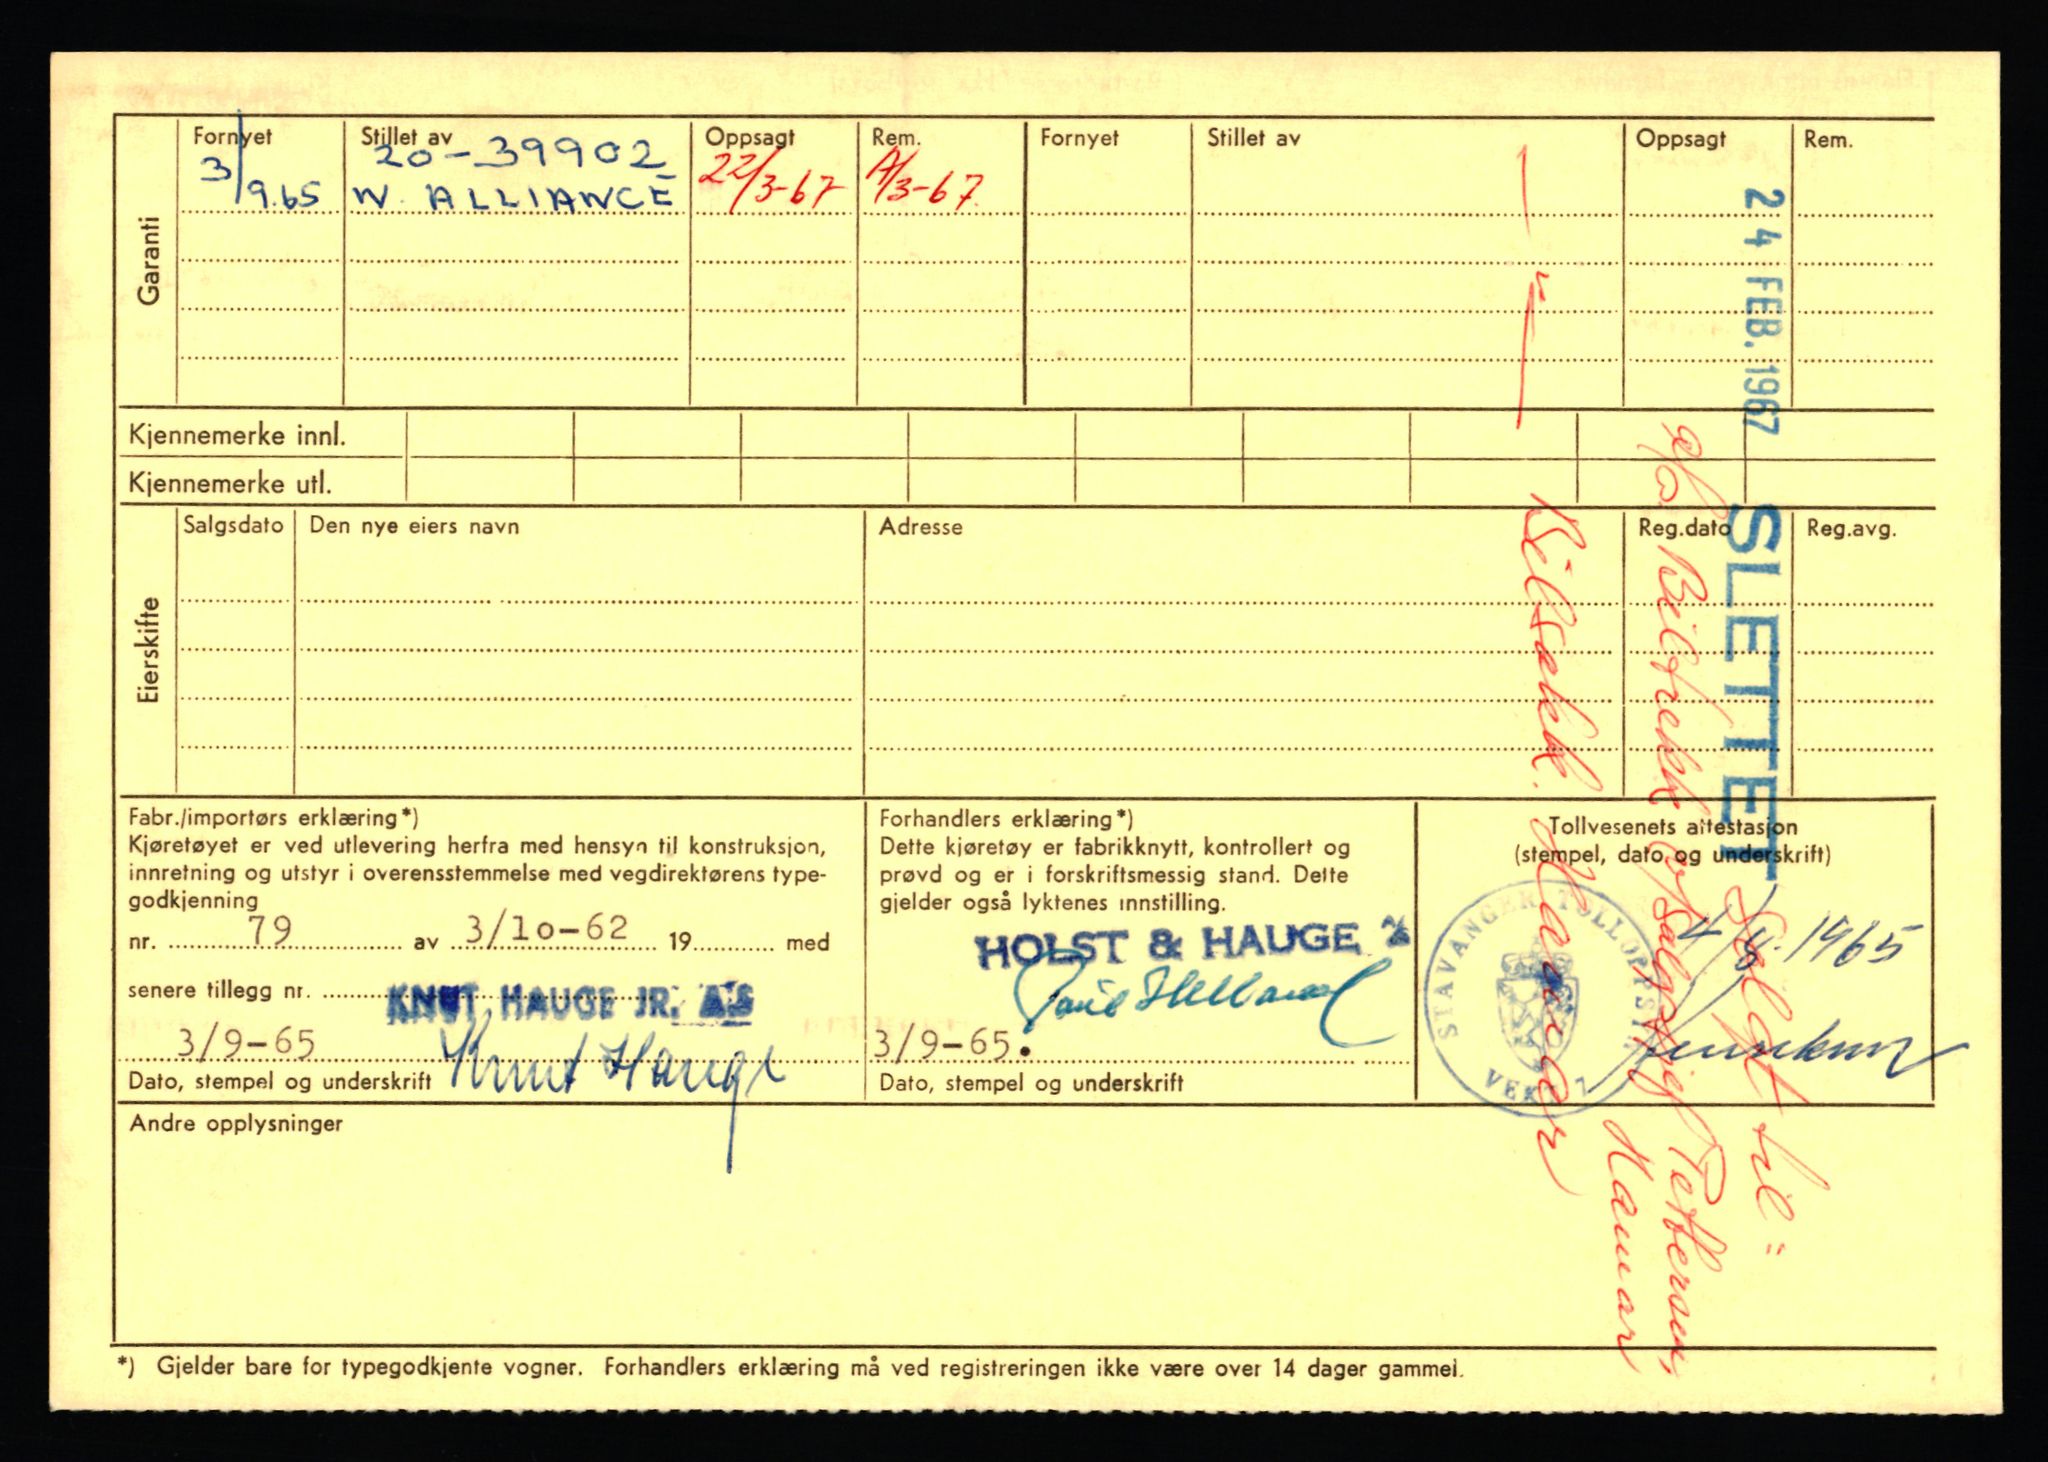 Garanti
Fornyet Stillet av Oppsagt Rem. Fornyet Stillet av Oppsagt Rem.
3/9.65 20-39902 22/3-67 /3-67
W. ALLIANCE
24 FEB. 1967
SLETTET
Kjennemerke innl.
Kjennemerke utl.
Eierskifte
Salgsdato Den nye eiers navn Adresse Reg.dato Reg.avg.
Solgt til:
Biltrekk Pettersen,
Hamar
Hamar
Fabr./importørs erklæring*)
Kjøretøyet er ved utlevering herfra med hensyn til konstruksjon,
innretning og utstyr i overensstemmelse med vegdirektørens type-
godkjenning
nr. 79 av 3/10-62 19 med
senere tillegg nr.
KNUT HAUGE JR. A/S
3/9-65 Knut Hauge
Dato, stempel og underskrift
Forhandlers erklæring*)
Dette kjøretøy er fabrikknytt, kontrollert og
prøvd og er i forskriftsmessig stand. Dette
gjelder også lyktenes innstilling.
HOLST & HAUGE
3/9-65.
Dato, stempel og underskrift
Tollvesenets attestasjon
(stempel, dato og underskrift)
STAVANGER TOLLOPPSYN
1965
Andre opplysninger
*) Gjelder bare for typegodkjente vogner. Forhandlers erklæring må ved registreringen ikke være over 14 dager gammel.